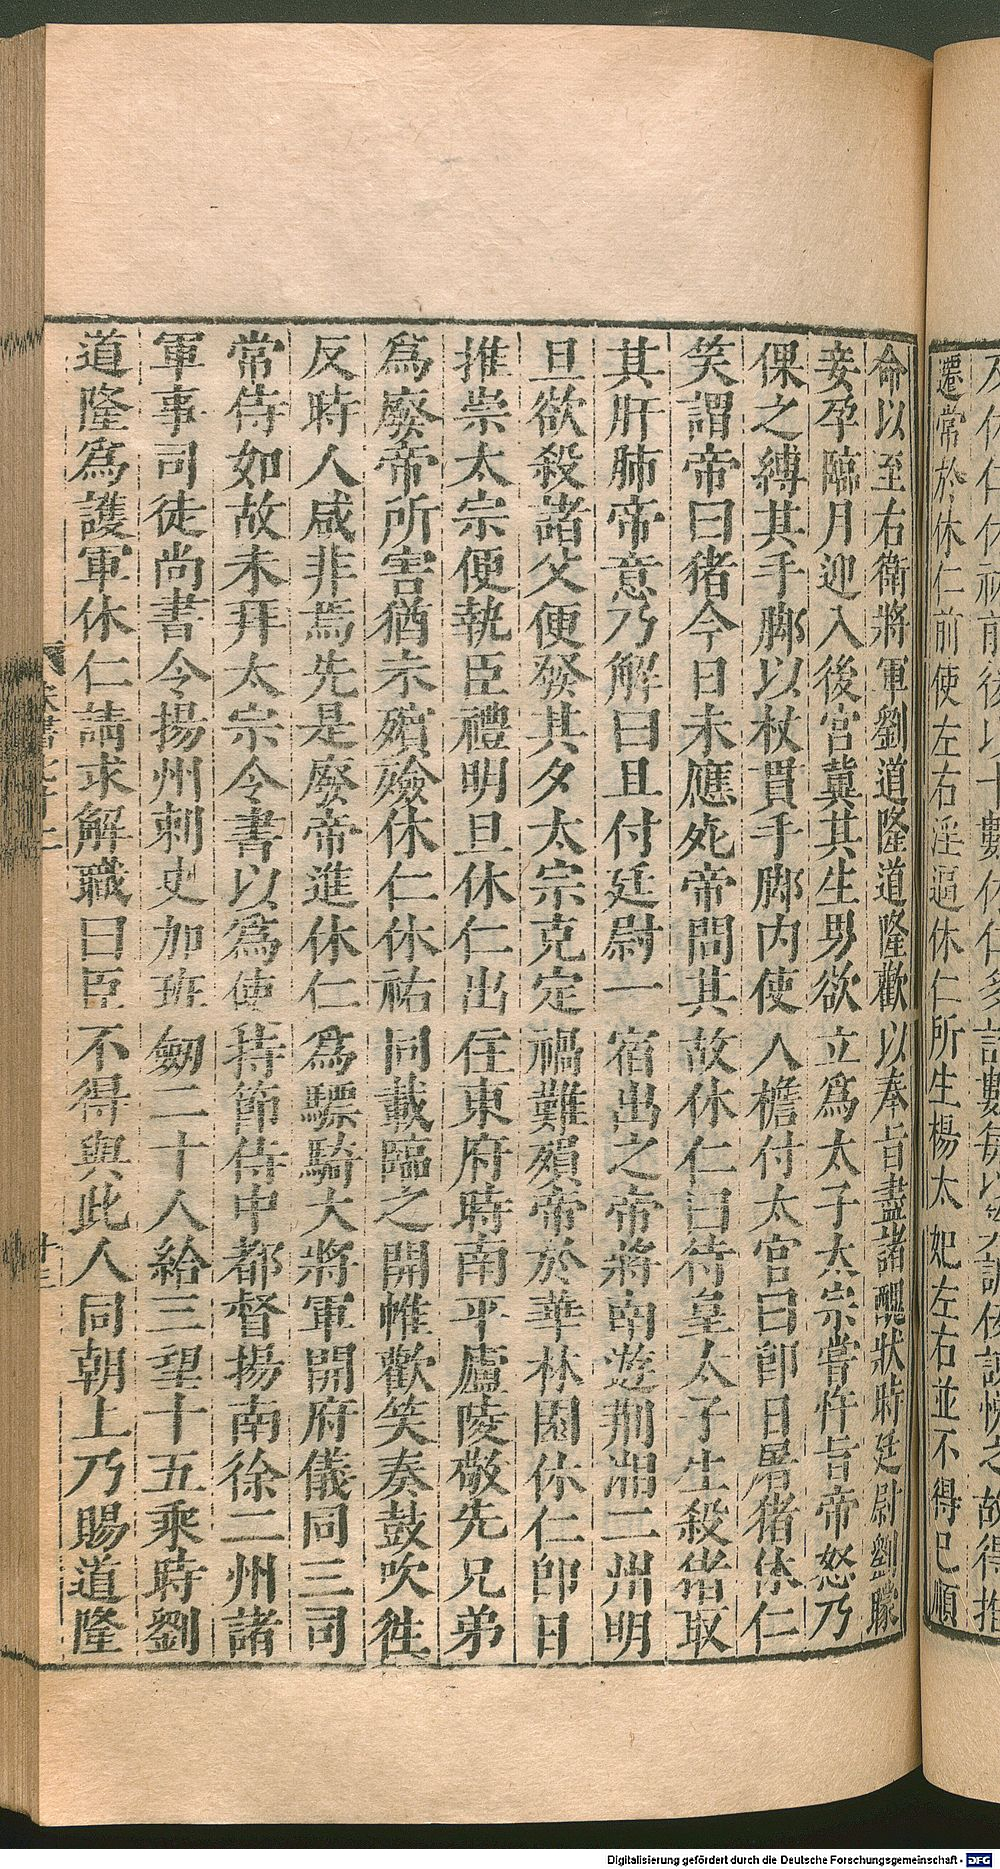 遷常於休仁前使左右淫逼休仁所生楊太妃左右並不得已順
命以至右衛將軍劉道隆道隆歡以奉旨盡諸醜狀時廷尉劉矇
妾孕臨月迎入後宮冀其生男欲立爲太子太宗嘗忤旨帝怒乃
倮之縛其手脚以杖貫手脚内使人檐付太官曰卽日屠猪休仁
笑謂帝曰猪今日未應死帝問其故休仁曰待皇太子生殺猪取
其肝肺帝意乃解曰且付廷尉一宿出之帝將南遊荆湘二州明
旦欲殺諸父便發其夕太宗克定禍難殞帝於華林園休仁卽日
推崇太宗便執臣禮明旦休仁出住東府時南平廬陵敬先兄弟
爲廢帝所害猶未殯殮休仁休祐同載臨之開帷歡笑奏鼓吹往
反時人咸非焉先是廢帝進休仁爲驃騎大將軍開府儀同三司
常侍如故未拜太宗令書以爲使持節侍中都督揚南徐二州諸
軍事司徒尚書令揚州刺史加班劒二十人給三望十五乘時劉
道隆爲護軍休仁請求解職曰臣不得與此人同朝上乃賜道隆
Digitalisierung gefördert durch die Deutsche Forschungsgemeinschaft - DFG